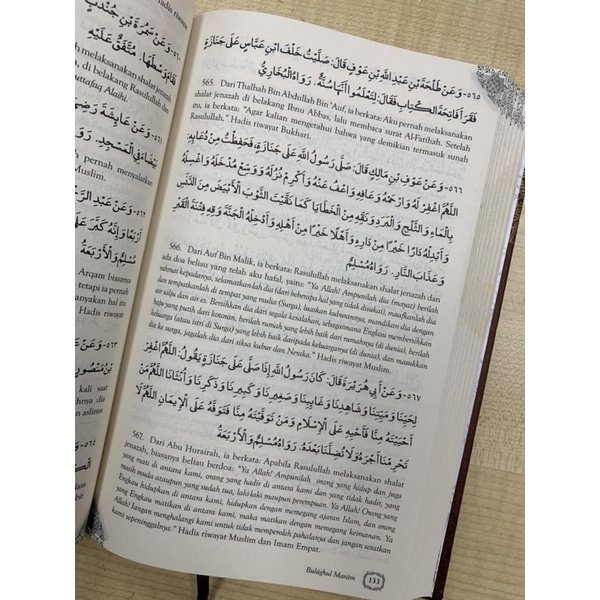 ٥٦٥- وَعَنْ طَلْحَةَ بْنِ عَبْدِ اللَّهِ بْنِ عَوْفٍ قَالَ: صَلَّيْتُ خَلْفَ ابْنِ عَبَّاسٍ عَلَى جَنَازَةٍ
فَقَرَأَ فَاتِحَةَ الْكِتَابِ فَقَالَ: لِتَعْلَمُوا أَنَّهَا سُنَّةٌ. رَوَاهُ الْبُخَارِيُّ
565. Dari Thalhah Bin Abdullah Bin 'Auf, ia berkata: Aku pernah melaksanakan
shalat jenazah di belakang Ibnu Abbas, lalu membaca surat Al-Fatihah. Setelah
usai, ia berkata: "Agar kalian mengetahui bahwa yang demikian termasuk sunah
Rasulullah." Hadis riwayat Bukhari.
٥٦٦- وَعَنْ عَوْفِ بْنِ مَالِكٍ قَالَ: صَلَّى رَسُولُ اللَّهِ عَلَى جَنَازَةٍ، فَحَفِظْتُ مِنْ دُعَائِهِ:
اللَّهُمَّ اغْفِرْ لَهُ وَارْحَمْهُ وَعَافِهِ وَاعْفُ عَنْهُ وَأَكْرِمْ نُزُلَهُ وَوَسِّعْ مُدْخَلَهُ وَاغْسِلْهُ
بِالْمَاءِ وَالثَّلْجِ وَالْبَرَدِ وَنَقِّهِ مِنَ الْخَطَايَا كَمَا نَقَّيْتَ الثَّوْبَ الْأَبْيَضَ مِنَ الدَّنَسِ
وَأَبْدِلْهُ دَارًا خَيْرًا مِنْ دَارِهِ وَأَهْلًا خَيْرًا مِنْ أَهْلِهِ وَأَدْخِلْهُ الْجَنَّةَ وَقِهِ فِتْنَةَ الْقَبْرِ
وَعَذَابَ النَّارِ. رَوَاهُ مُسْلِمٌ
566. Dari Auf Bin Malik, ia berkata: Rasulullah melaksanakan shalat jenazah dan
ada doa beliau yang telah aku hafal, yaitu: "Ya Allah! Ampunilah dia (mayat) berilah
rahmat kepadanya, selamatkanlah dia (dari beberapa hal yang tidak disukai), maafkanlah dia
dan tempatkanlah di tempat yang mulia (Surga), luaskan kuburannya, mandikan dia dengan
air salju dan air es. Bersihkan dia dari segala kesalahan, sebagaimana Engkau membersihkan
baju yang putih dari kotoran, berilah rumah yang lebih baik dari rumahnya (di dunia), berilah
keluarga (atau istri di Surga) yang lebih baik daripada keluarganya (di dunia), dan masukkan
dia ke surga, jagalah dia dari siksa kubur dan Neraka." Hadis riwayat Muslim.
٥٦٧- وَعَنْ أَبِي هُرَيْرَةَ قَالَ: كَانَ رَسُولُ اللَّهِ إِذَا صَلَّى عَلَى جَنَازَةٍ يَقُولُ: اللَّهُمَّ اغْفِرْ
لِحَيِّنَا وَمَيِّتِنَا وَشَاهِدِنَا وَغَائِبِنَا وَصَغِيرِنَا وَكَبِيرِنَا وَذَكَرِنَا وَأُنْثَانَا اللَّهُمَّ مَنْ
أَحْيَيْتَهُ مِنَّا فَأَحْيِهِ عَلَى الْإِسْلَامِ وَمَنْ تَوَفَّيْتَهُ مِنَّا فَتَوَفَّهُ عَلَى الْإِيمَانِ اللَّهُمَّ لَا
تَحْرِمْنَا أَجْرَهُ وَلَا تُضِلَّنَا بَعْدَهُ. رَوَاهُ مُسْلِمٌ وَالْأَرْبَعَةُ
567. Dari Abu Hurairah, ia berkata: Apabila Rasulullah melaksanakan shalat
jenazah, biasanya beliau berdoa: "Ya Allah! Ampunilah orang yang hidup dan juga
yang mati di antara kami, orang yang hadir di antara kami dan yang tidak hadir, yang
masih muda ataupun yang sudah tua, laki-laki maupun perempuan. Ya Allah! Orang yang
Engkau hidupkan di antara kami, hidupkan dengan memegang ajaran Islam, dan orang
yang Engkau matikan di antara kami, maka matikan dengan memegang keimanan. Ya
Allah! Jangan menghalangi kami untuk tidak memperoleh pahalanya dan jangan sesatkan
kami sepeninggalnya." Hadis riwayat Muslim dan Imam Empat.
Bulûghul Marâm
133